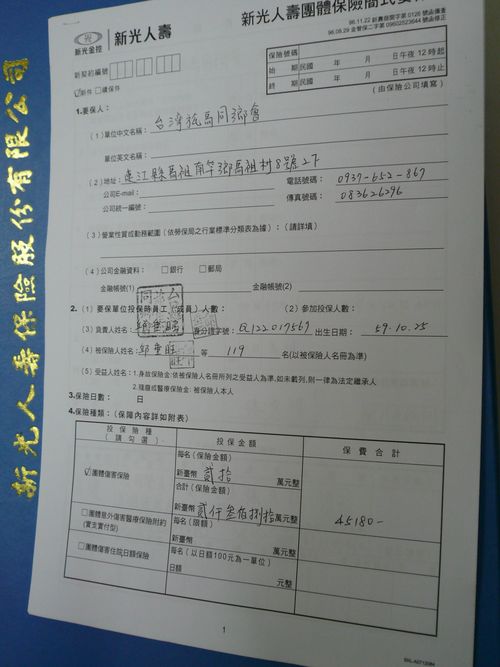 新光人壽保險股份有限公司
新光金控 新光人壽
新光人壽團體保險簡式要
96.11.22
96.08.29
新契約編號
☑新件 □續保件
保險號碼
始 期民國 年 月 日午夜12時起
終 期民國 年 月 日午夜12時止
(由保險公司填寫)
1.要保人:
(1)單位中文名稱: 台灣旅馬同鄉會
單位英文名稱:
(2)地址: 連江縣馬祖南竿鄉馬祖村8號2F 電話號碼: 0937-652-867
公司E-mail: 傳真號碼: 083626296
公司統一編號:
(3)營業性質或勤務範圍(依勞保局之行業標準分類表為據):(請詳填)
(4)公司金融資料: □銀行 □郵局
金融帳號(1) 金融帳號(2)
2.(1)要保單位投保時員工(成員)人數: (2)參加投保人數:
(3)負責人姓名: 身分證字號: 出生日期: 59.10.25
(4)被保險人姓名: 等 119 名(以被保險人名冊為準)
(5)受益人姓名:1.身故保險金:依被保險人名冊所列之受益人為準,如未載列,則一律為法定繼承人
2.殘廢或醫療保險金:被保險人本人
3.保險日數: 日
4.保險種類:(保障內容詳如附表)
投保險種
(請勾選)
投保金額
保費合計
☑團體傷害保險
每名(保險金額)
新臺幣 貳拾 萬元整
合計(保險金額)
新臺幣 貳仟叁佰捌拾 萬元整
45180-
□團體意外傷害醫療保險附約
(實支實付型)
每名(限額)
新臺幣 萬元整
□團體傷害住院日額保險
每名(以日額100元為一單位)
日額 元整
1